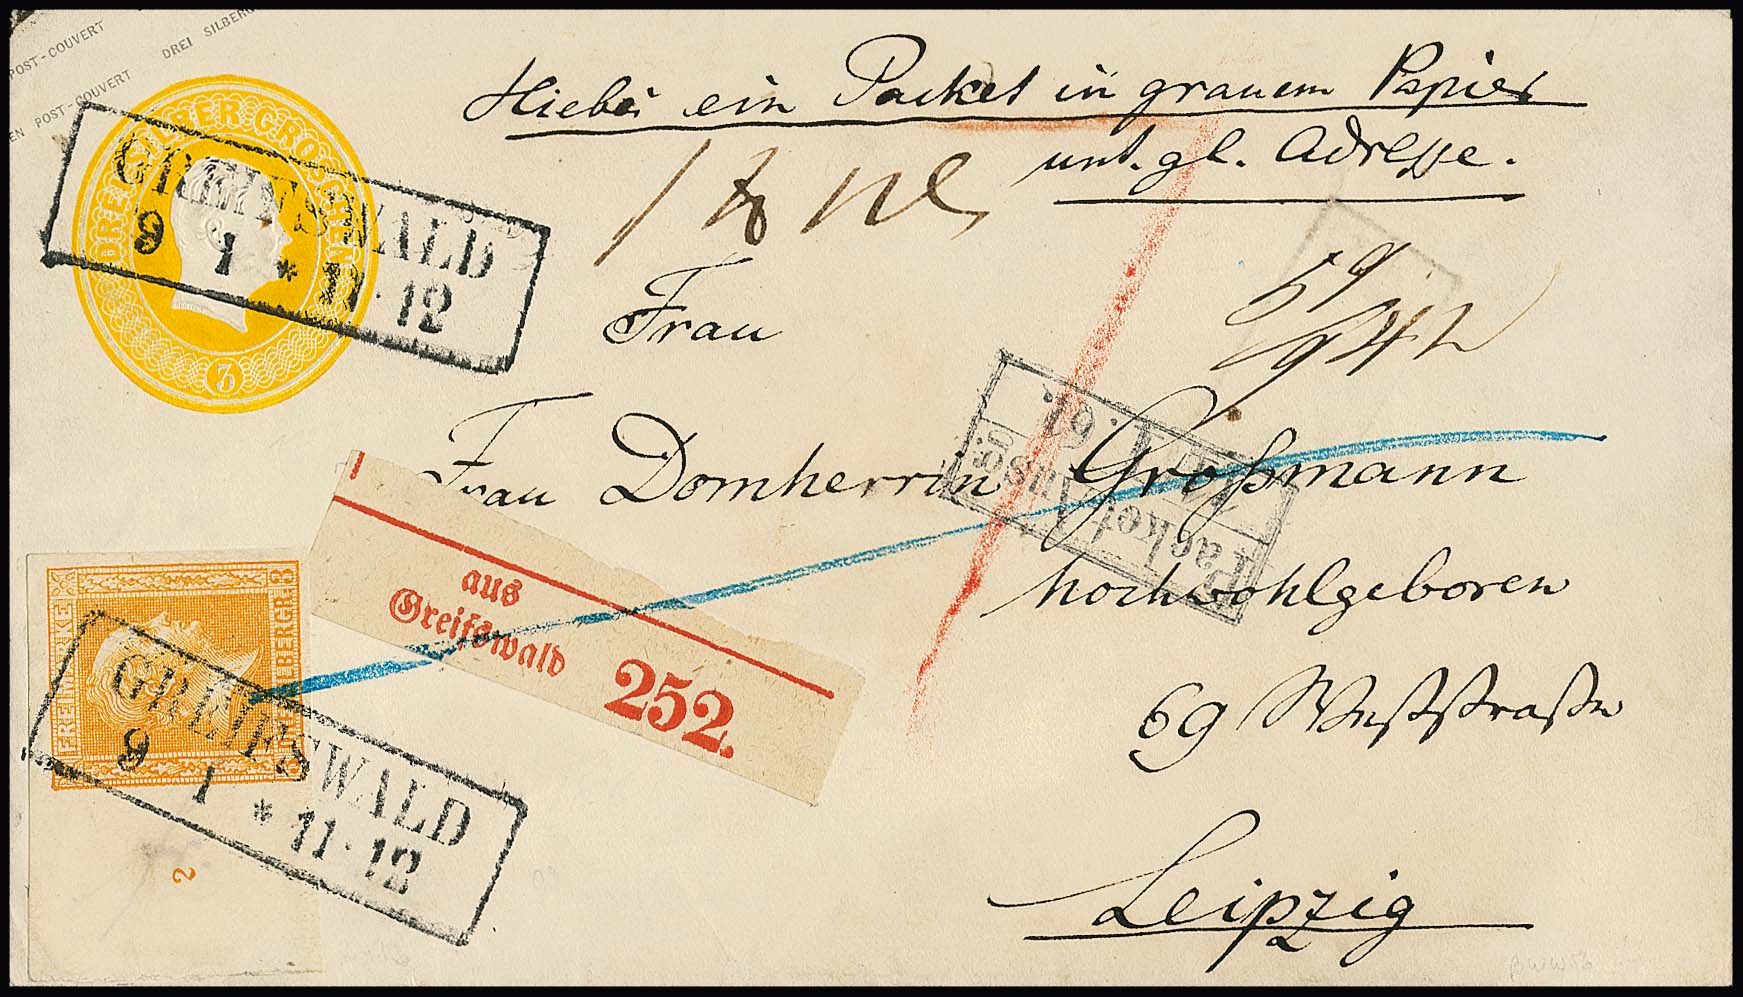 POST-COUVERT DREI SILBERG
EN POST-COUVERT
DREI SILBER GROSCHEN
3
GREIFSWALD
9 1 * 11·12
Hiebei ein Packet in grauem Papier
unt. gl. Adresse.
Frau
Frau Domherrin Großmann
hochwohlgeboren
69 Weststraße
Leipzig
aus
Greifswald
252.
Packet
Ausg.
1. 61.
FREIMARKE
3 SILBERGR. 3
GREIFSWALD
9 1 * 11·12
2